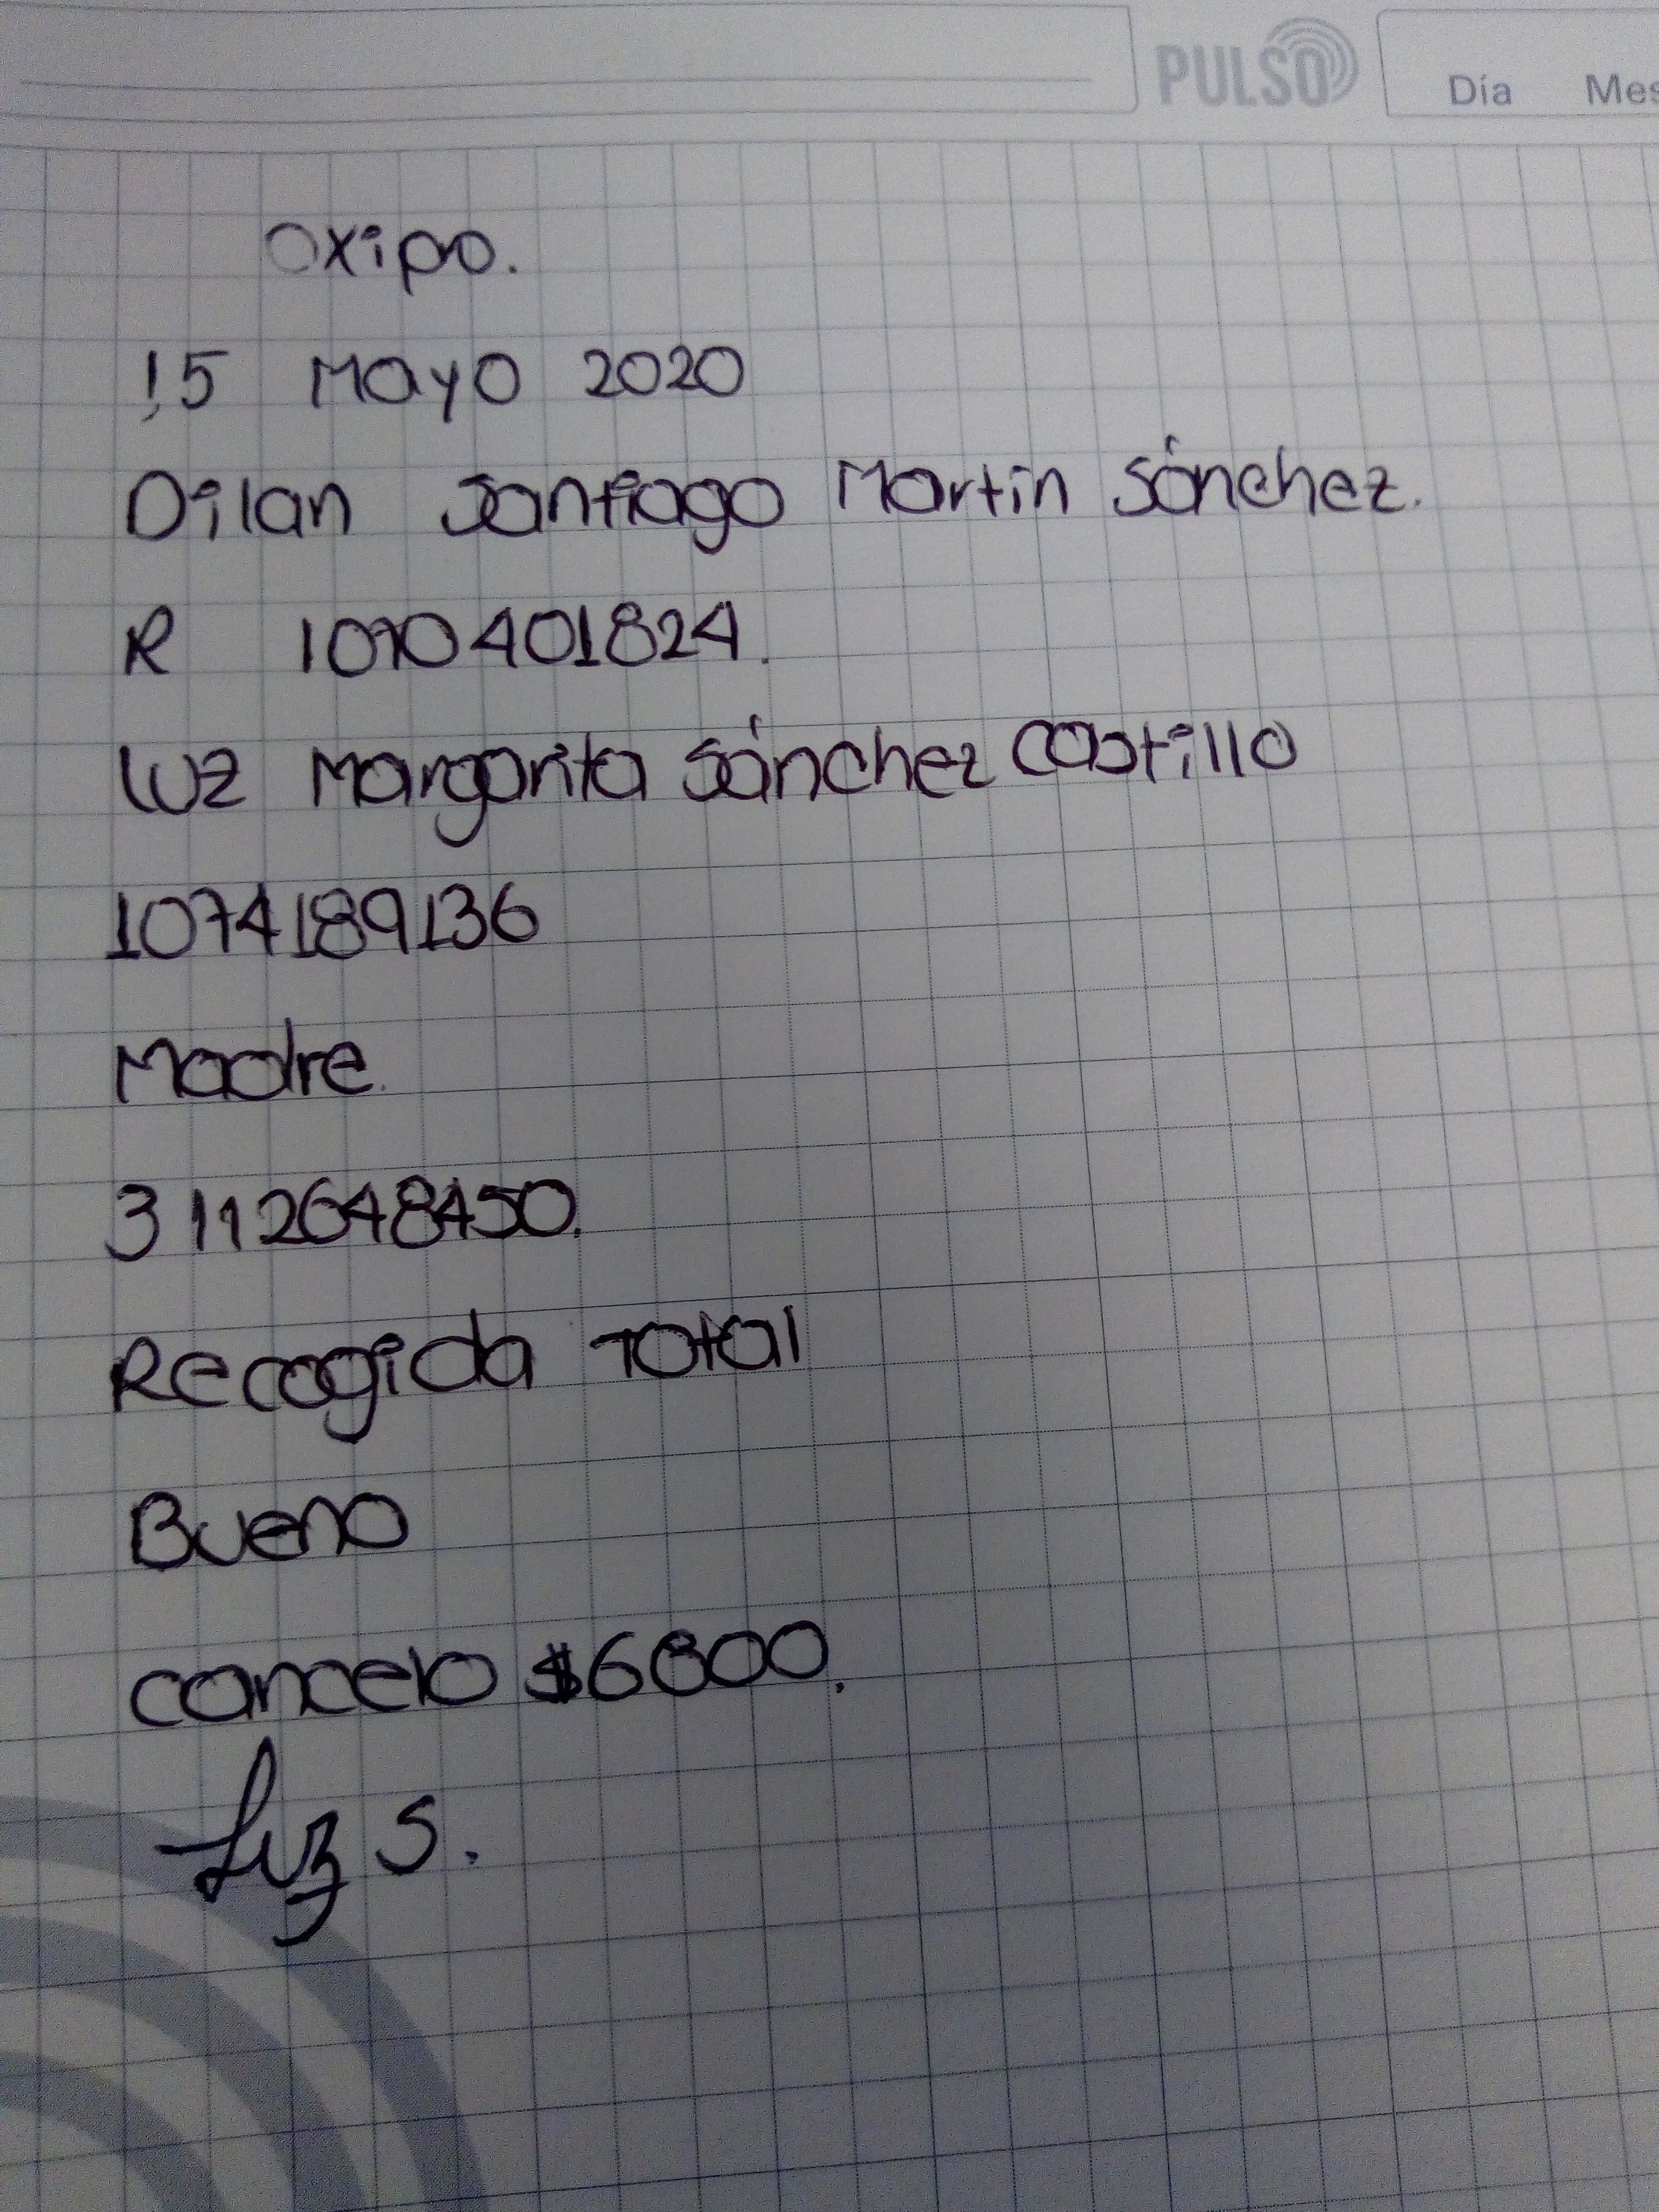 PULSO
Día Mes
Oxipro.
15 Mayo 2020
Dilan Santiago Martin Sánchez.
R 1070401824.
Luz Margarita Sánchez Castillo
1074189136
Madre.
3112648450.
Recogida Total
Bueno
cancelo $6800.
Luz S.